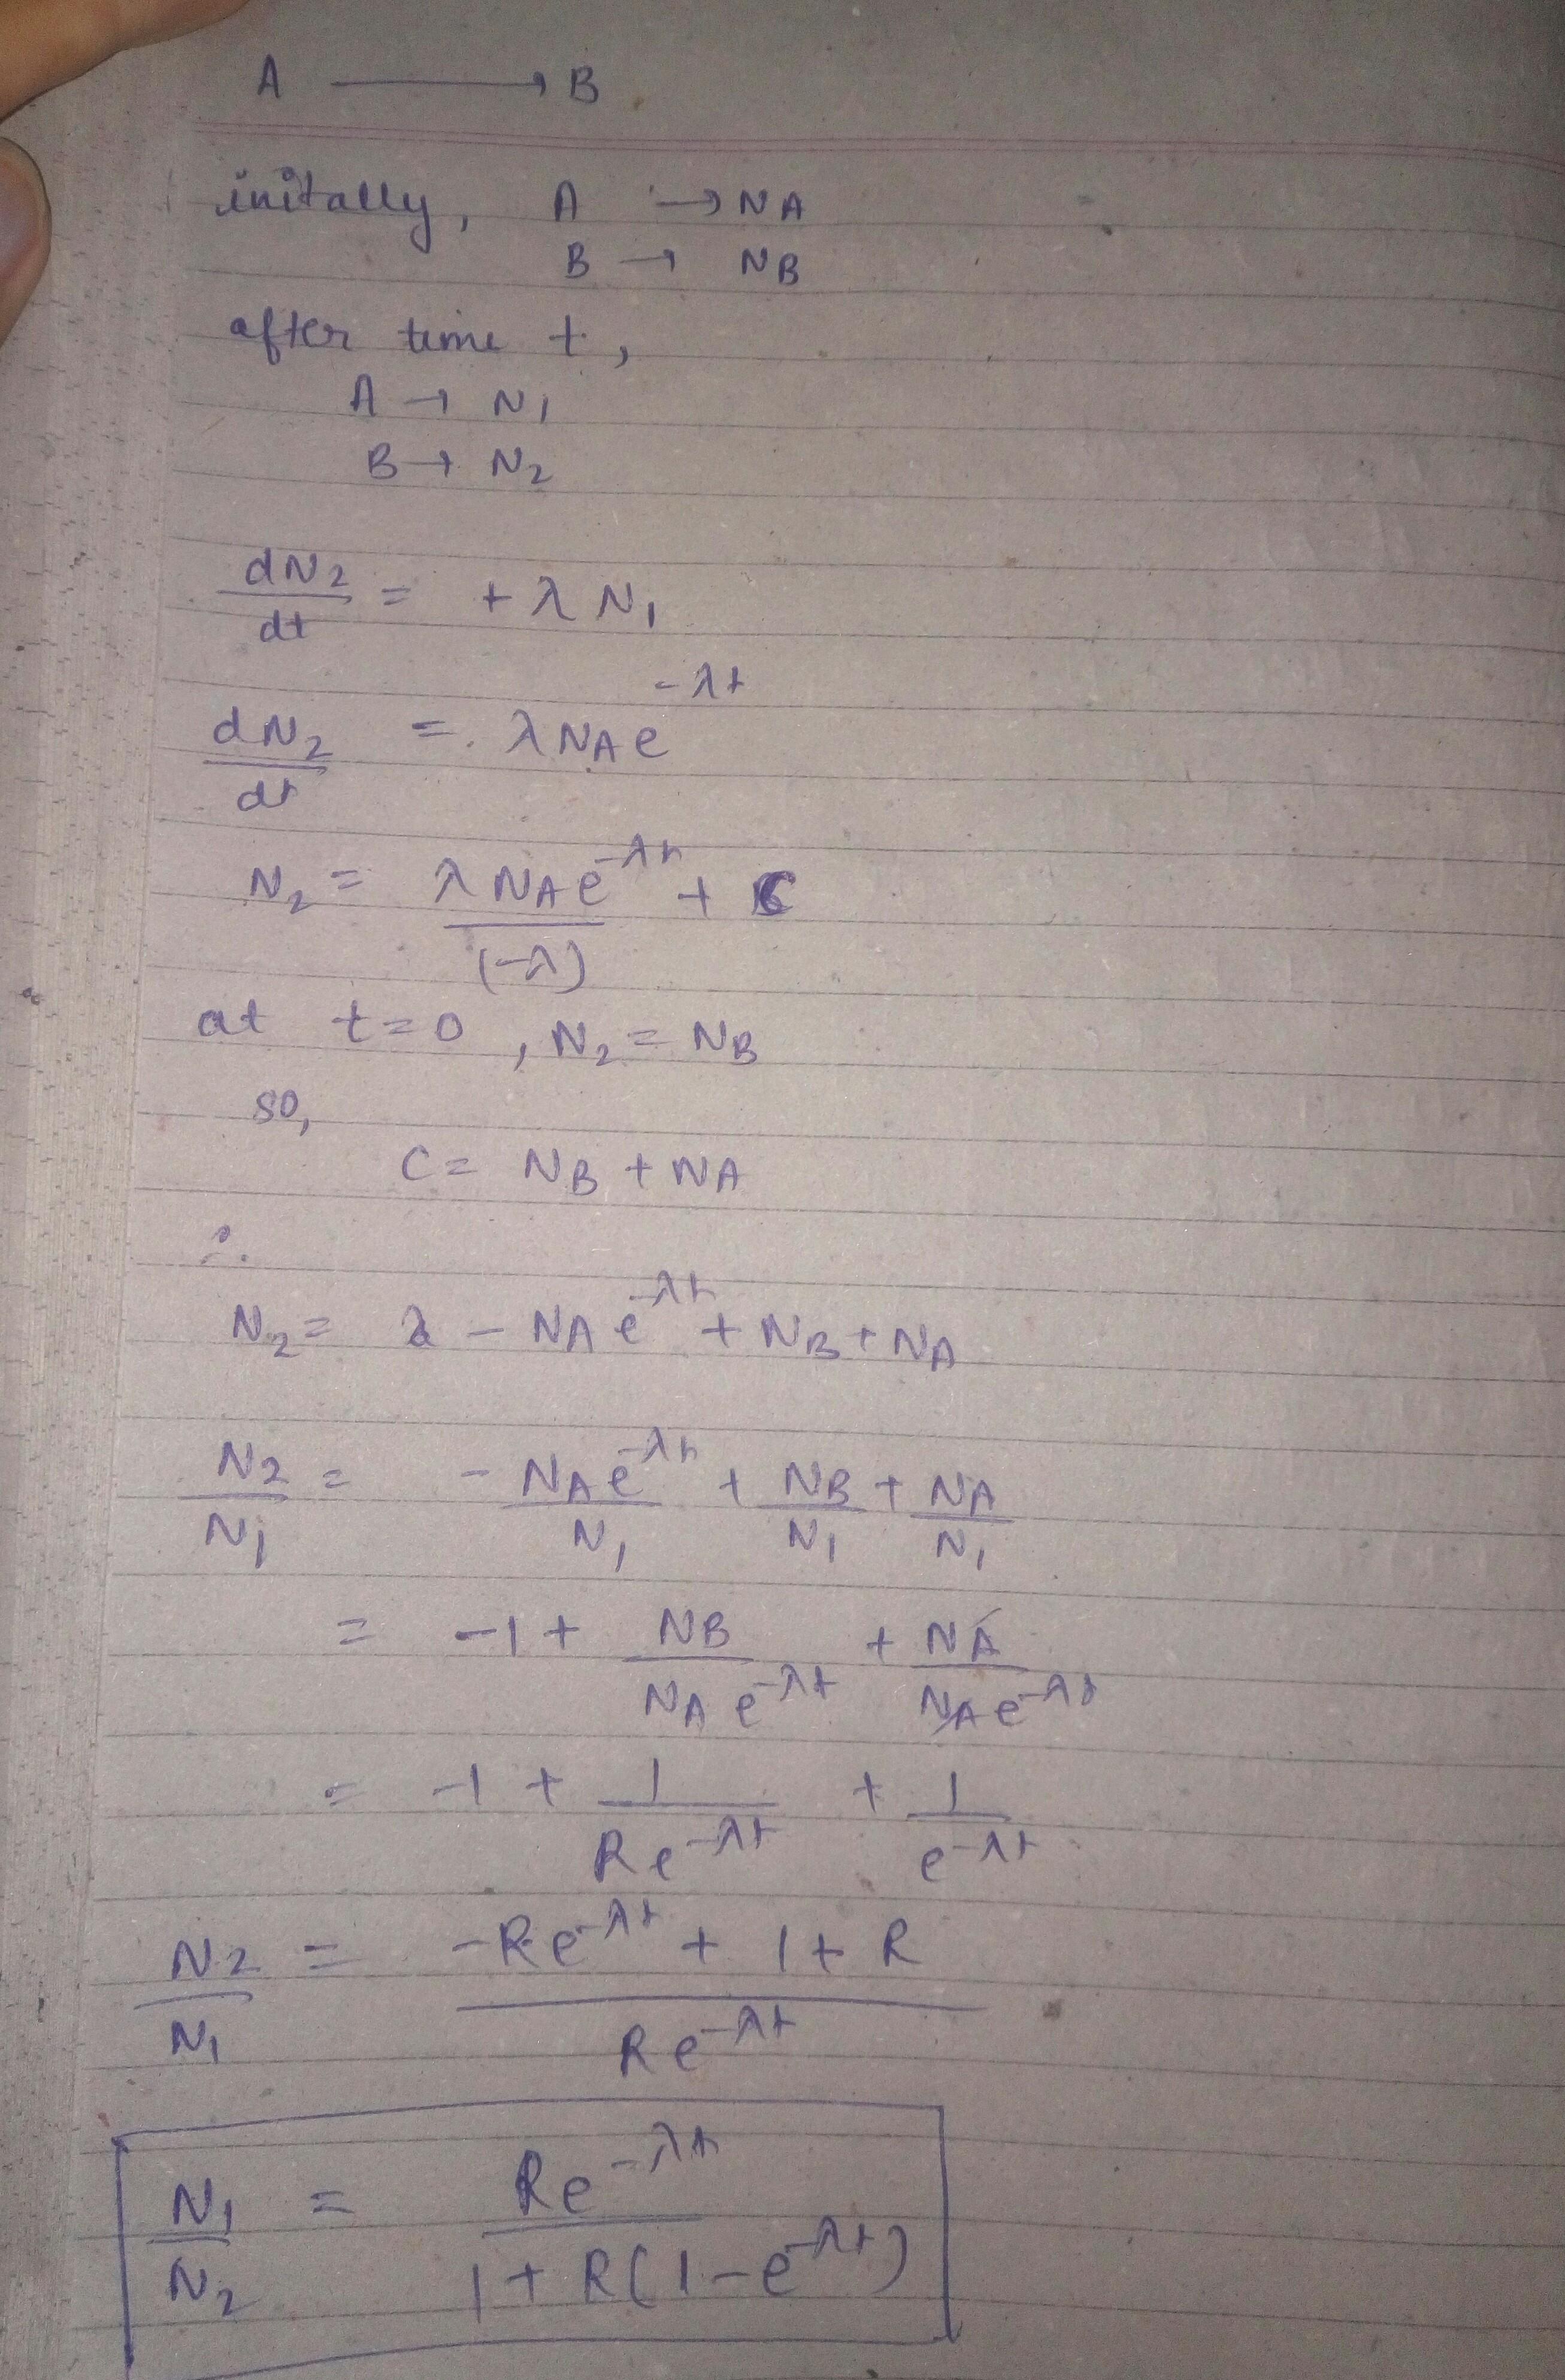 A → B
initally, A → NA
B → NB
after time t,
A → N1
B → N2
dN2/dt = + λ N1
dN2/dt = λ NA e^-λt
N2 = λ NA e^-λt/(-λ) + C
at t=0, N2 = NB
so,
C = NB + NA
∴
N2 = - NA e^-λt + NB + NA
N2/N1 = - NA e^-λt/N1 + NB/N1 + NA/N1
= -1 + NB/NA e^-λt + NA/NA e^-λt
= -1 + 1/Re^-λt + 1/e^-λt
N2/N1 = -Re^-λt + 1 + R/Re^-λt
N1/N2 = Re^-λt/1 + R(1-e^-λt)